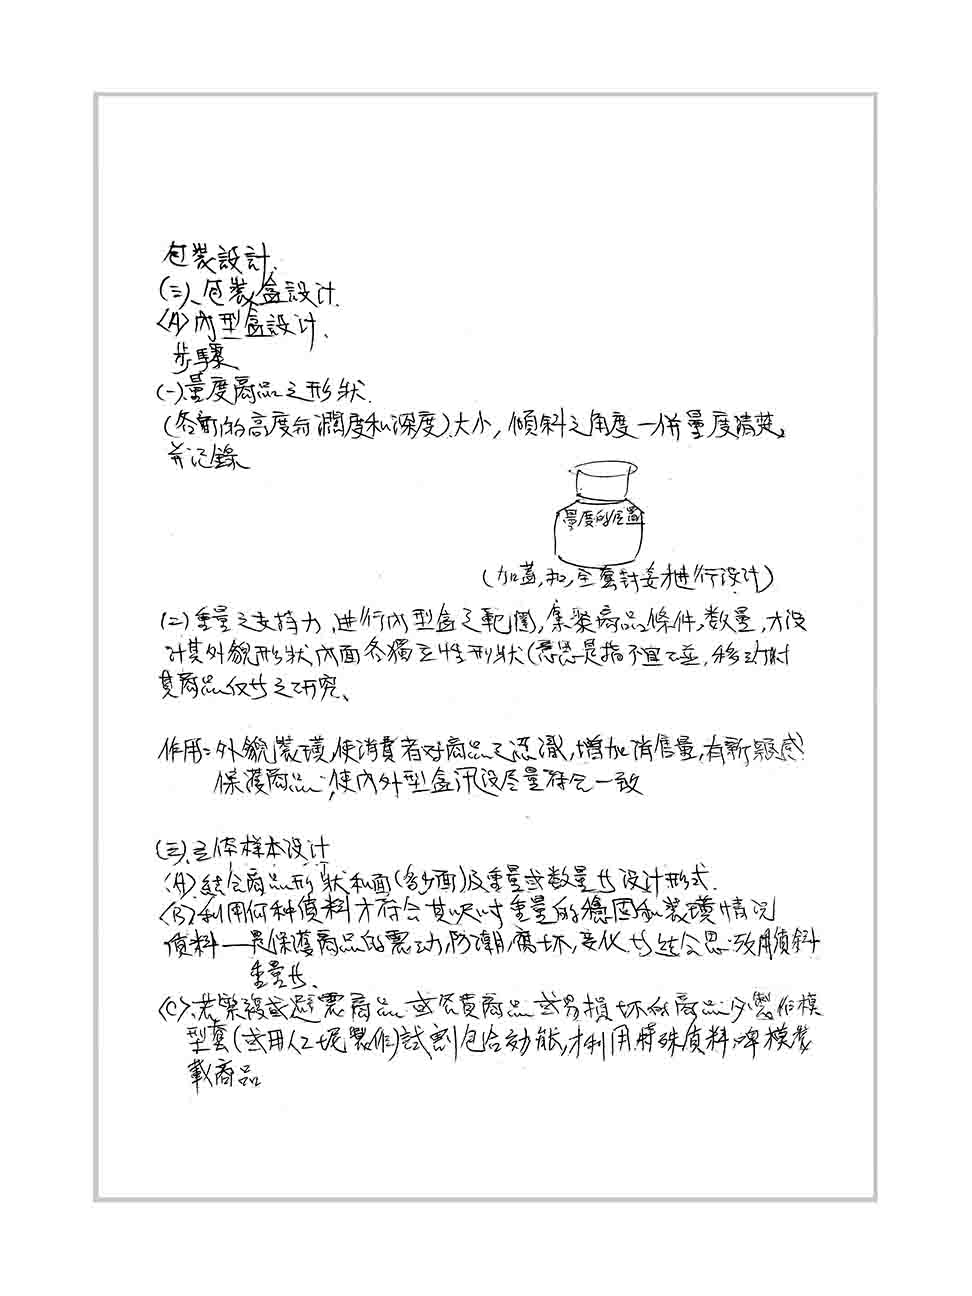 包裝設計.
(三)、包裝盒設計.
<A>內型盒設計、
步驟
(一)量度商品之形狀.
(各部的高度与濶度和深度)大小, 傾斜之角度一併量度清楚,
並记錄
量度的位置
(加蓋,和,全套封妥才進行设计)
(二)重量之支持力,進行內型盒之範圍,集裝商品條件,数量,才设
计其外貌形狀內面各獨立性型狀(意思是指不宜
商品之研究、
作用:外貌裝璜,使消費者对商品之,增加消售量,有新穎感.
保護商品;使內外型盒尽量符合一致
(三).立体样本设计
<A>結合商品形狀和面(多少面)及重量或数量才设计形式.
<B>利用何种質料才符合其呎吋重量的穩固和裝璜情況
質料—是保護商品的震动,防潮,腐坏,变化
重量
<C>.若緊複或震商品或名貴商品或易損坏的商品製作模
型套(或用人工坭製作)試割包合効能,才利用特殊質料啤模裝
載商品